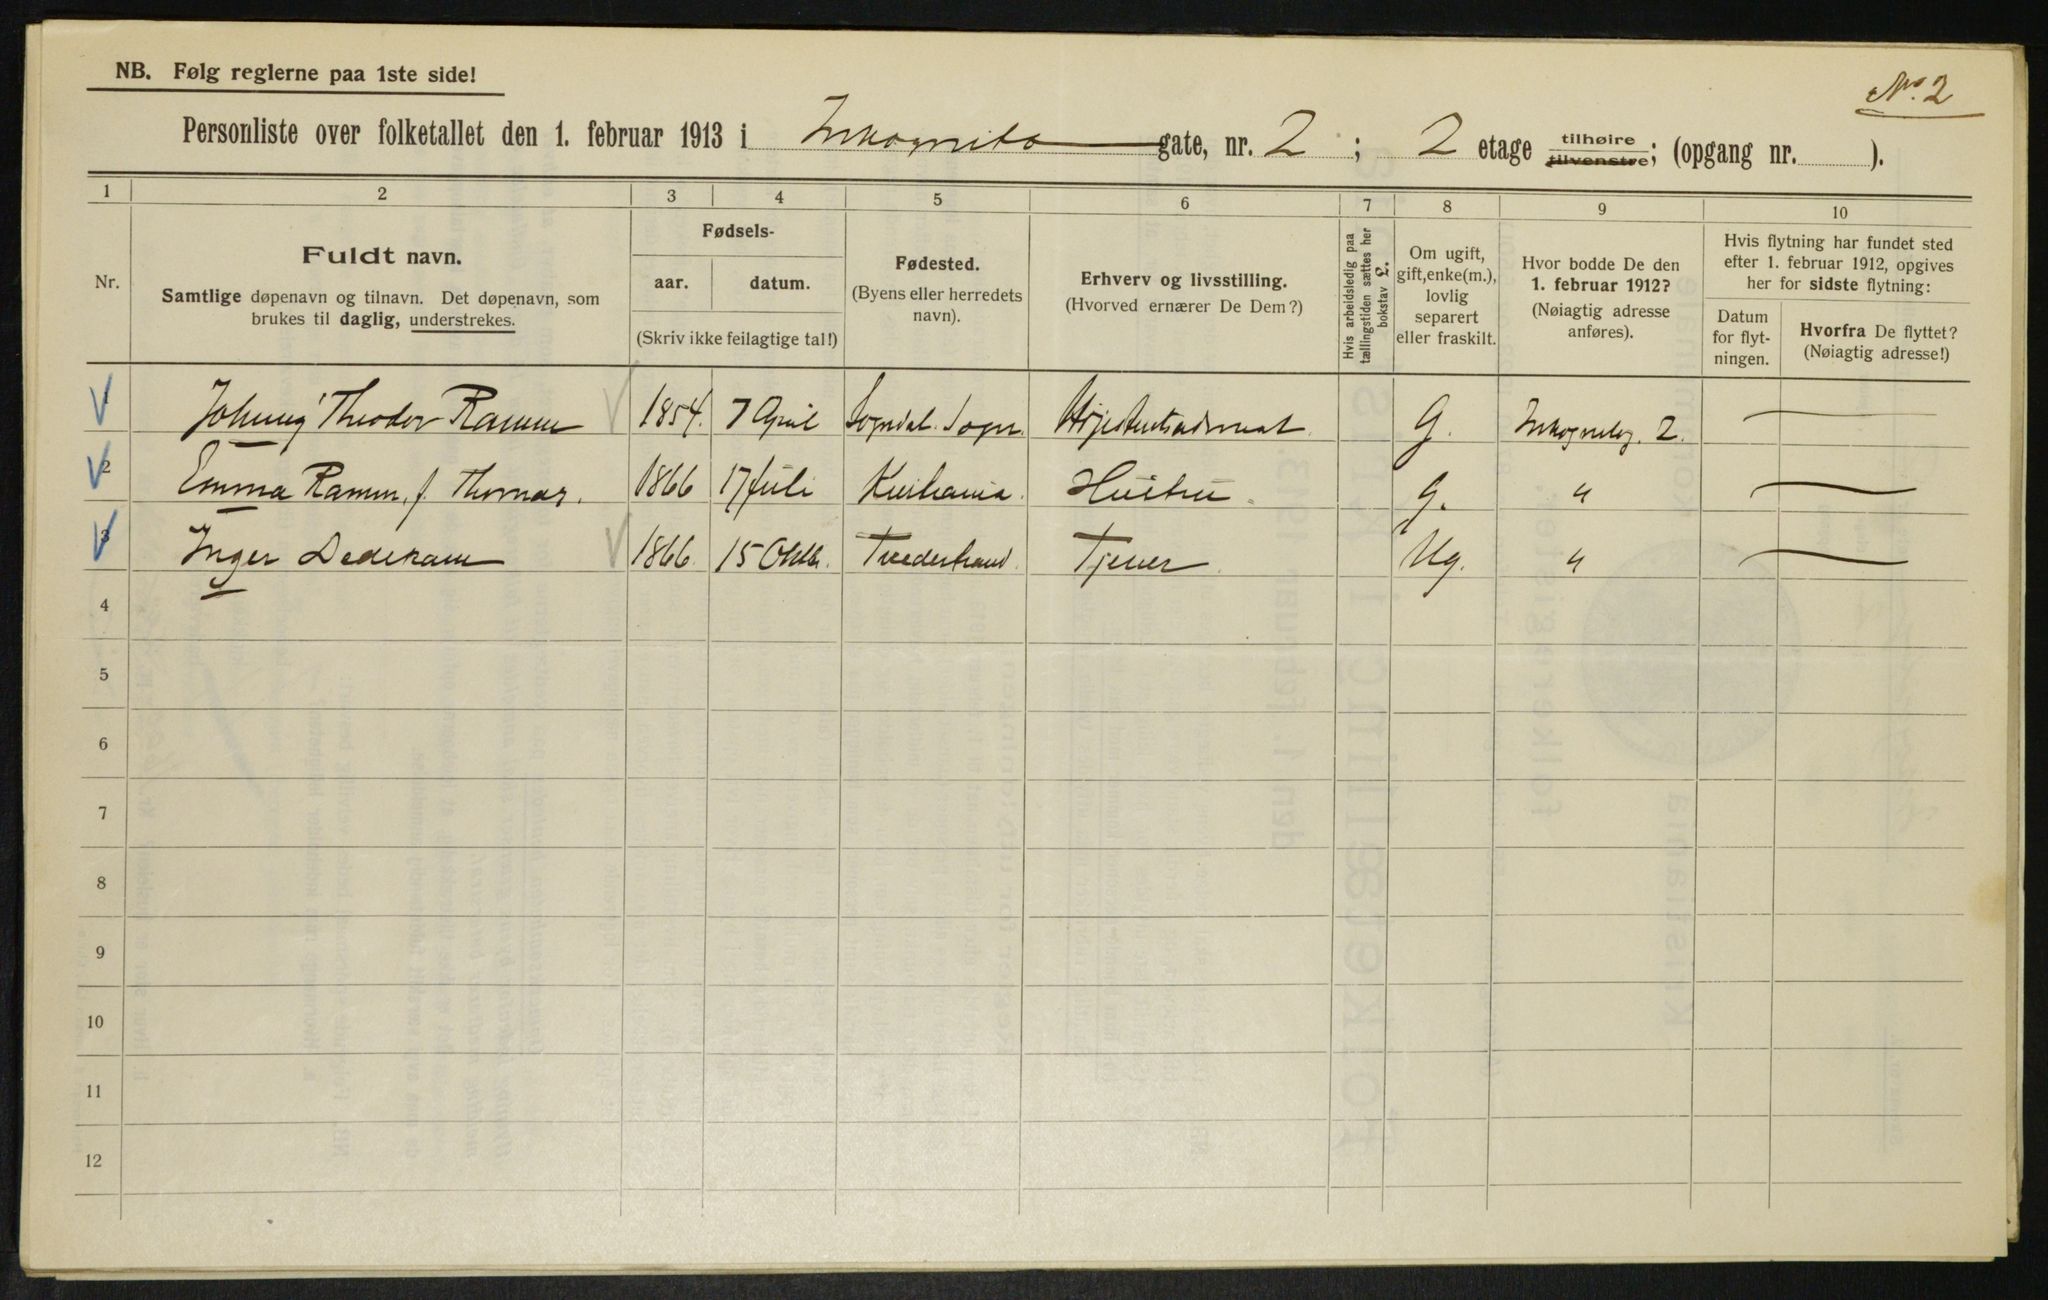 NB. Følg reglerne paa 1ste side!
No. 2
Personliste over folketallet den 1. februar 1913 i Inkognito gate, nr. 2 ; 2 etage tilhøire tilvenstre; (opgang nr. ).
1 2 3 4 5 6 7 8 9 10
Nr.
Fuldt navn.
Samtlige døpenavn og tilnavn. Det døpenavn, som
brukes til daglig, understrekes.
Fødsels-
aar. datum.
(Skriv ikke feilagtige tal!)
Fødested.
(Byens eller herredets
navn).
Erhverv og livsstilling.
(Hvorved ernærer De Dem?)
Hvis arbeidsledig paa
tællingstiden sættes her
bokstav £.
Om ugift,
gift, enke(m.),
lovlig
separert
eller fraskilt.
Hvor bodde De den
1. februar 1912?
(Nøiagtig adresse
anføres).
Hvis flytning har fundet sted
efter 1. februar 1912, opgives
her for sidste flytning:
Datum
for flyt-
ningen.
Hvorfra De flyttet?
(Nøiagtig adresse!)
1 Johnny Theodor Ramm 1854. 7 April Sogndal. Sogn. Høiesteretsadvokat. G. Inkognitog. 2.
2 Emma Ramm, f. Thomas. 1866 17 Juli Kristiania. Hustru. G. "
3 Inger Dedekam 1866. 15 Oktb. Tvedestrand. Tjener. Ug. "
4
5
6
7
8
9
10
11
12